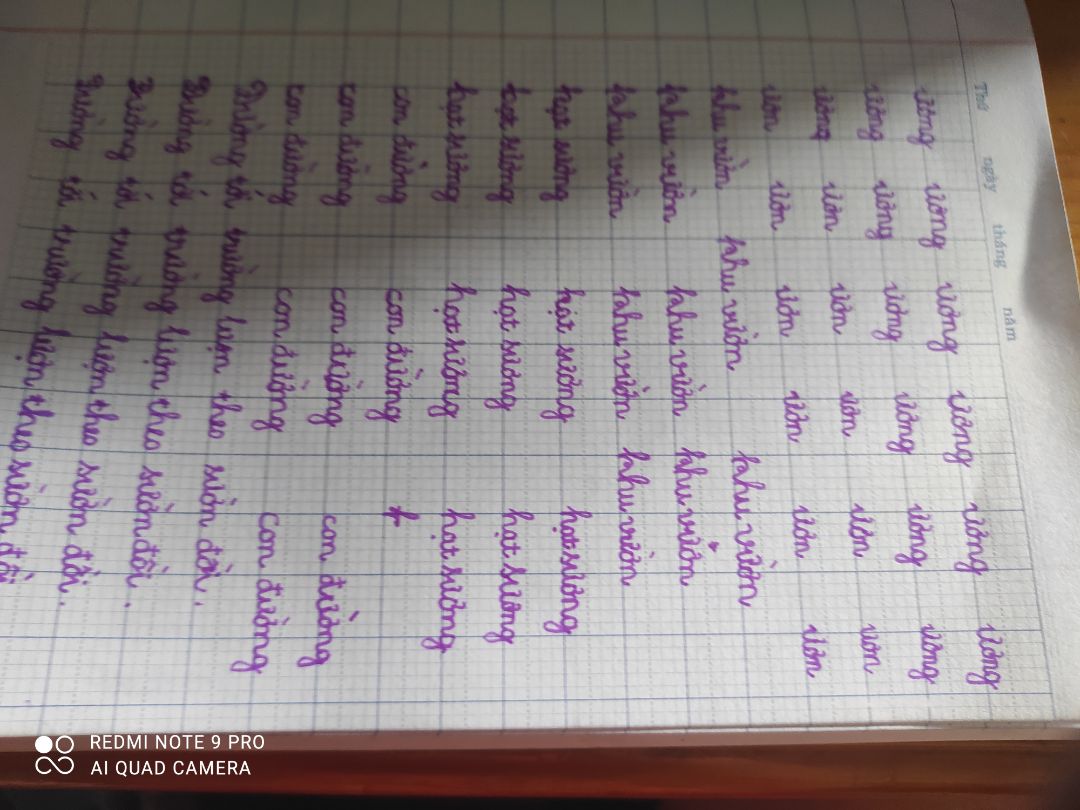 Thứ ngày tháng năm
ương ương ương ương ương ương
ương ương ương ương ương ương
ương ươn ươn ươn ươn ươn
ươn ươn ươn ươn ươn ươn
khu vườn khu vườn khu vườn
khu vườn khu vườn khu vườn
khu vườn khu vườn khu vườn
hạt sương hạt sương hạt sương
hạt sương hạt sương hạt sương
hạt sương hạt sương hạt sương
con đường con đường
con đường con đường con đường
con đường con đường con đường
Đường tới trường lượn theo sườn đồi.
Đường tới trường lượn theo sườn đồi.
Đường tới trường lượn theo sườn đồi.
Đường tới trường lượn theo sườn đồi.
REDMI NOTE 9 PRO
AI QUAD CAMERA